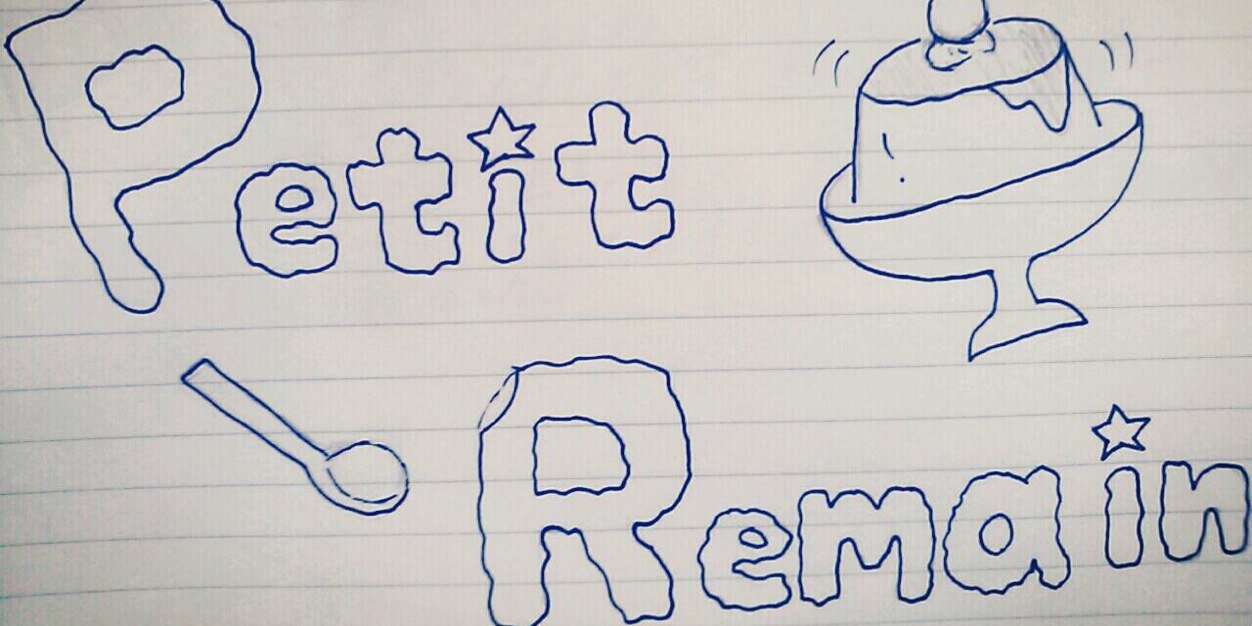 Petit
Remain